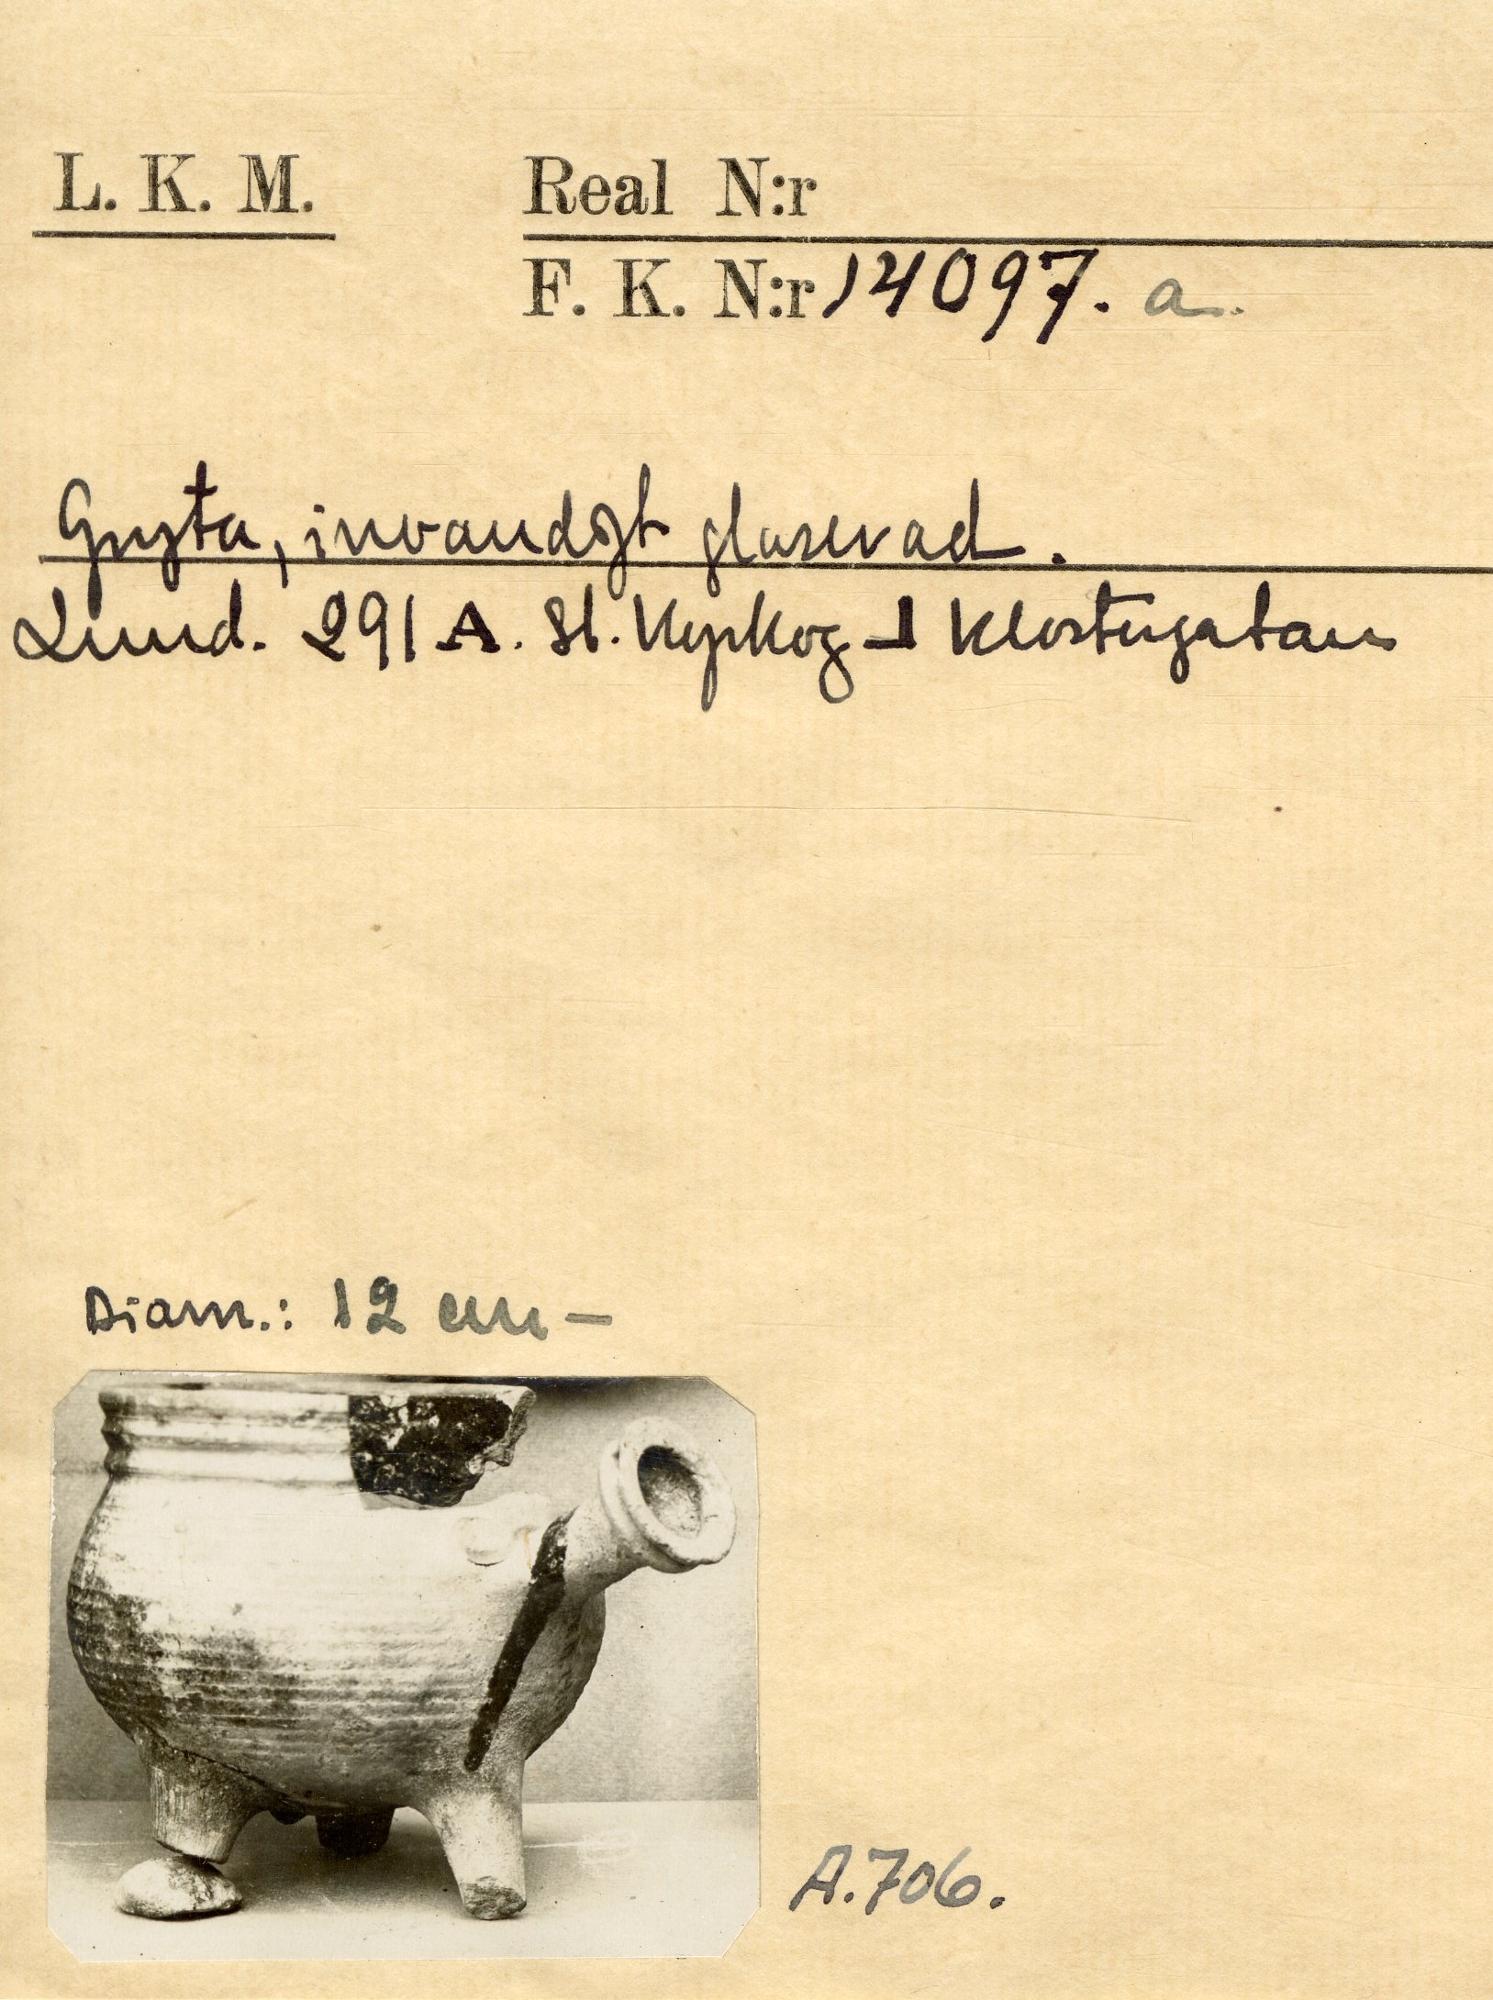 L. K. M.
Real N:r
F. K. N:r 14097. a.
Gryta, invändigt glaserad.
Lund. 291 A. St. Kyrkog - Klostergatan
Diam.: 12 cm –
A.706.